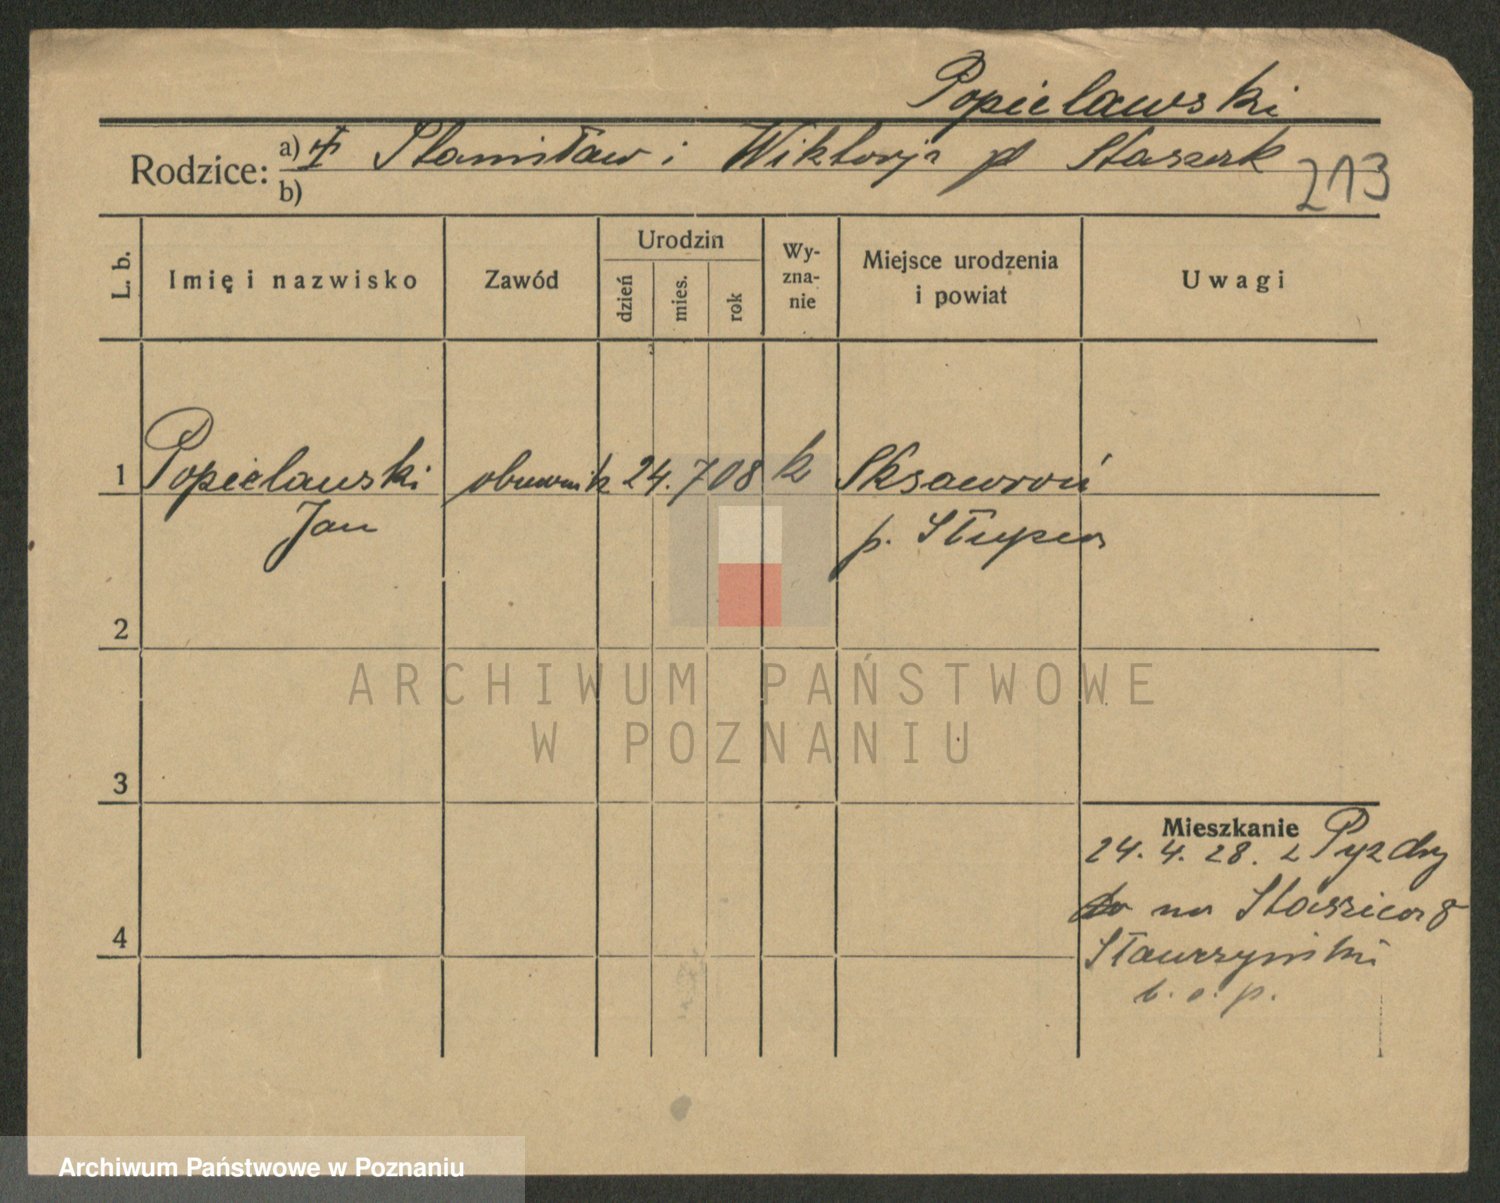 Popielawski
Rodzice: a) Stanisław i Wiktorja Staszak
b)
213
L. b. Imię i nazwisko Zawód Urodzin dzień mies. rok Wyznanie Miejsce urodzenia i powiat Uwagi
1 Popielawski obuwnik 24. 7 08 k Sksaworoń
Jan p. Słupca
2
3
4
Mieszkanie
24. 4. 28. z Pyzdry
na Staszica 8
b. o. p.
ARCHIWUM PAŃSTWOWE
W POZNANIU
Archiwum Państwowe w Poznaniu